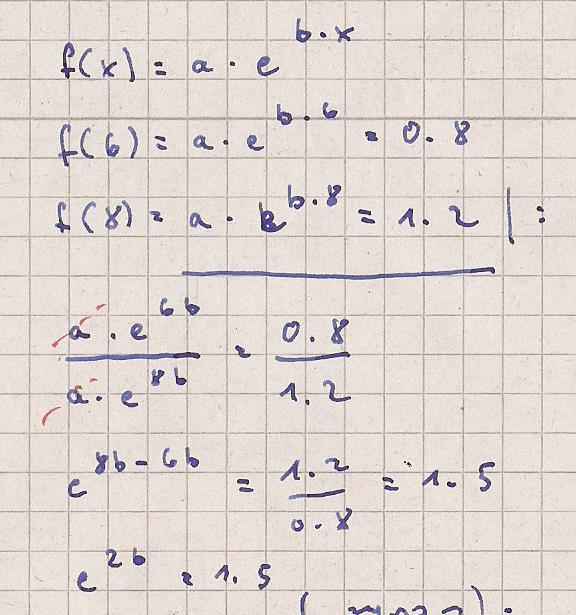 f(x) = a · e^{b·x}
f(6) = a · e^{b·6} = 0.8
f(8) = a · e^{b·8} = 1.2 | :
a · e^{6b} / a · e^{8b} = 0.8 / 1.2
e^{8b-6b} = 1.2 / 0.8 = 1.5
e^{2b} = 1.5